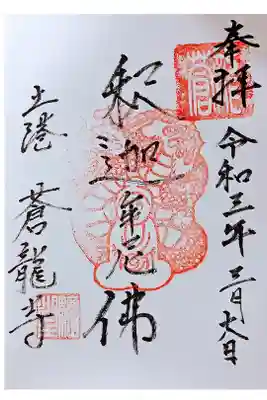 奉拝
令和三年三月六日
釈迦牟尼佛
蒼龍寺